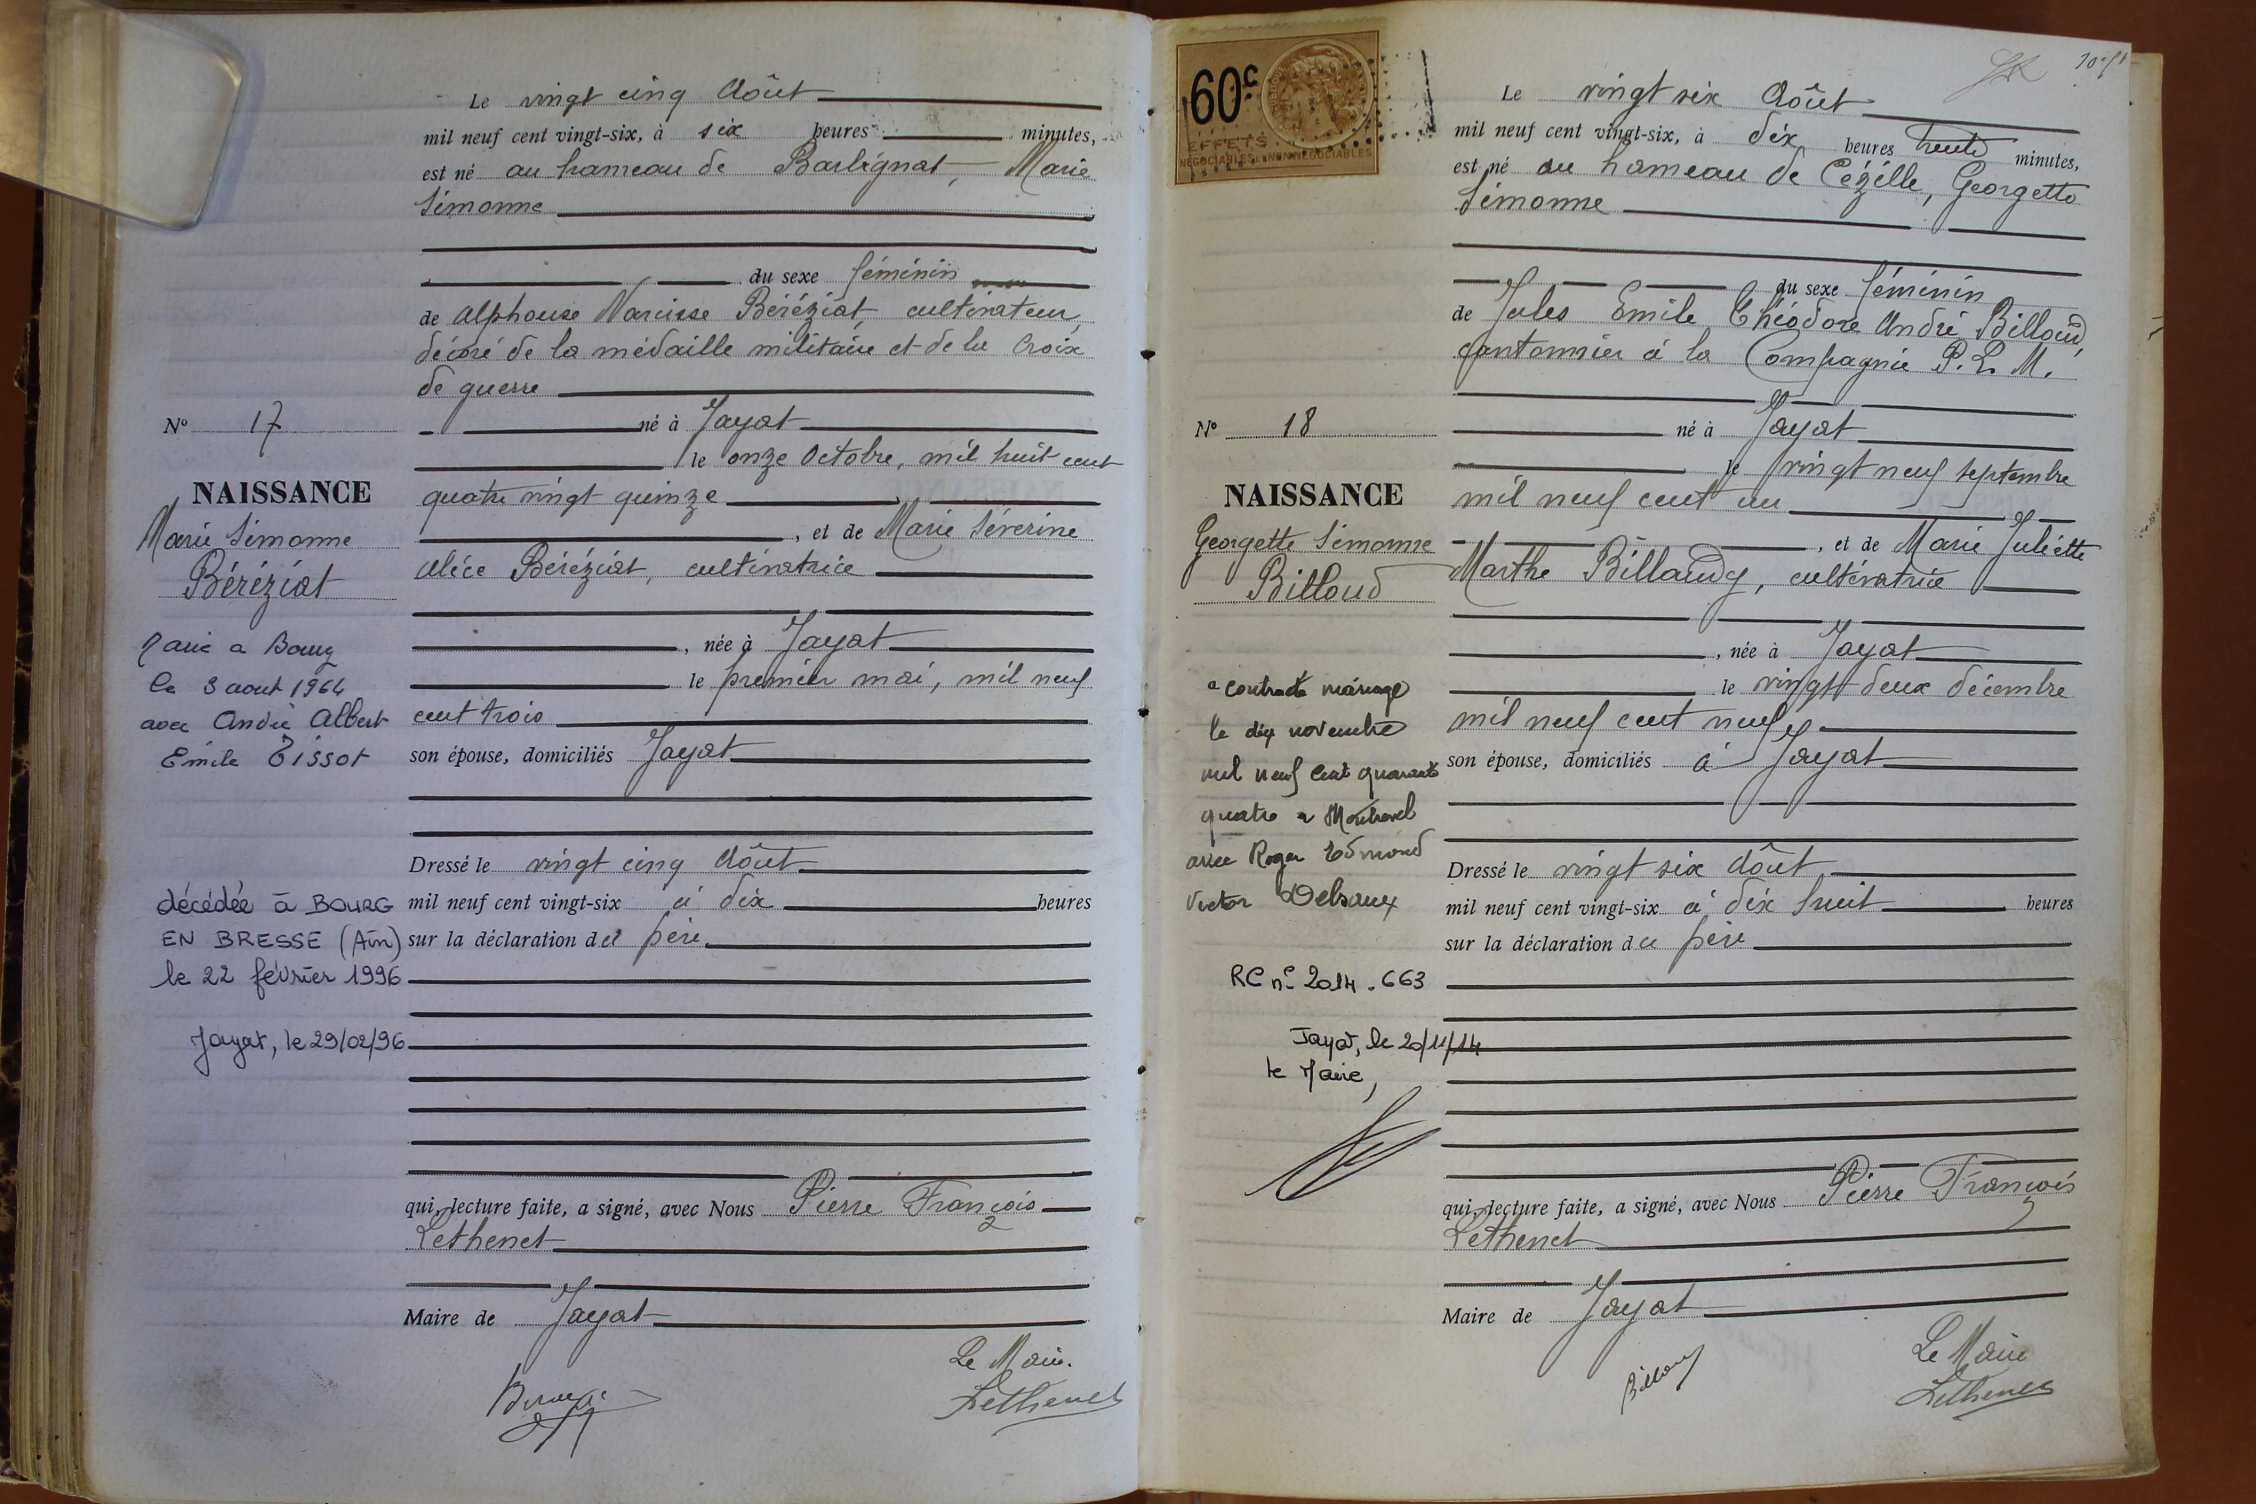 Le vingt cinq Août
mil neuf cent vingt-six, à six heures minutes,
est né au hameau de Barbignat, Marie
Simonne
du sexe féminin
de Alphonse Narcisse Béréziat, cultivateur,
décoré de la médaille militaire et de la Croix
de guerre
né à Jayat
le onze Octobre, mil huit cent
quatre vingt quinze
, et de Marie Séverine
Alice Béréziat, cultivatrice
, née à Jayat
le premier mai, mil neuf
cent trois
son épouse, domiciliés Jayat
Dressé le vingt cinq Août
mil neuf cent vingt-six à dix heures
sur la déclaration du père
qui, lecture faite, a signé, avec Nous Pierre François
Lethenet
Maire de Jayat
Le Maire.
Lethenet
N° 17
NAISSANCE
Marie Simonne
Béréziat
Marié a Bourg
le 3 aout 1964
avec André Albert
Emile Tissot
décédée à BOURG
EN BRESSE (Ain)
le 22 février 1996
Jayat, le 29/02/96
60c
EFFETS
NÉGOCIABLES & NON NÉGOCIABLES
Le vingt six Août
mil neuf cent vingt-six, à dix heures trente minutes,
est né au hameau de Cézille, Georgette
Simonne
du sexe féminin
de Jules Emile Théodore André Billoud,
cantonnier à la Compagnie P. L. M.
né à Jayat
le vingt neuf septembre
mil neuf cent un
, et de Marie Juliette
Marthe Billaudy, cultivatrice
, née à Jayat
le vingt deux décembre
mil neuf cent neuf
son épouse, domiciliés à Jayat
Dressé le vingt six Août
mil neuf cent vingt-six à dix huit heures
sur la déclaration du père
qui, lecture faite, a signé, avec Nous Pierre François
Lethenet
Maire de Jayat
Billoud
Le Maire
Lethenet
N° 18
NAISSANCE
Georgette Simonne
Billoud
a contracté mariage
le dix novembre
mil neuf cent quarante
quatre à Montrevel
avec Roger Edmond
Victor Delsaux
RC n° 2014.663
Jayat, le 20/11/14
le Maire,